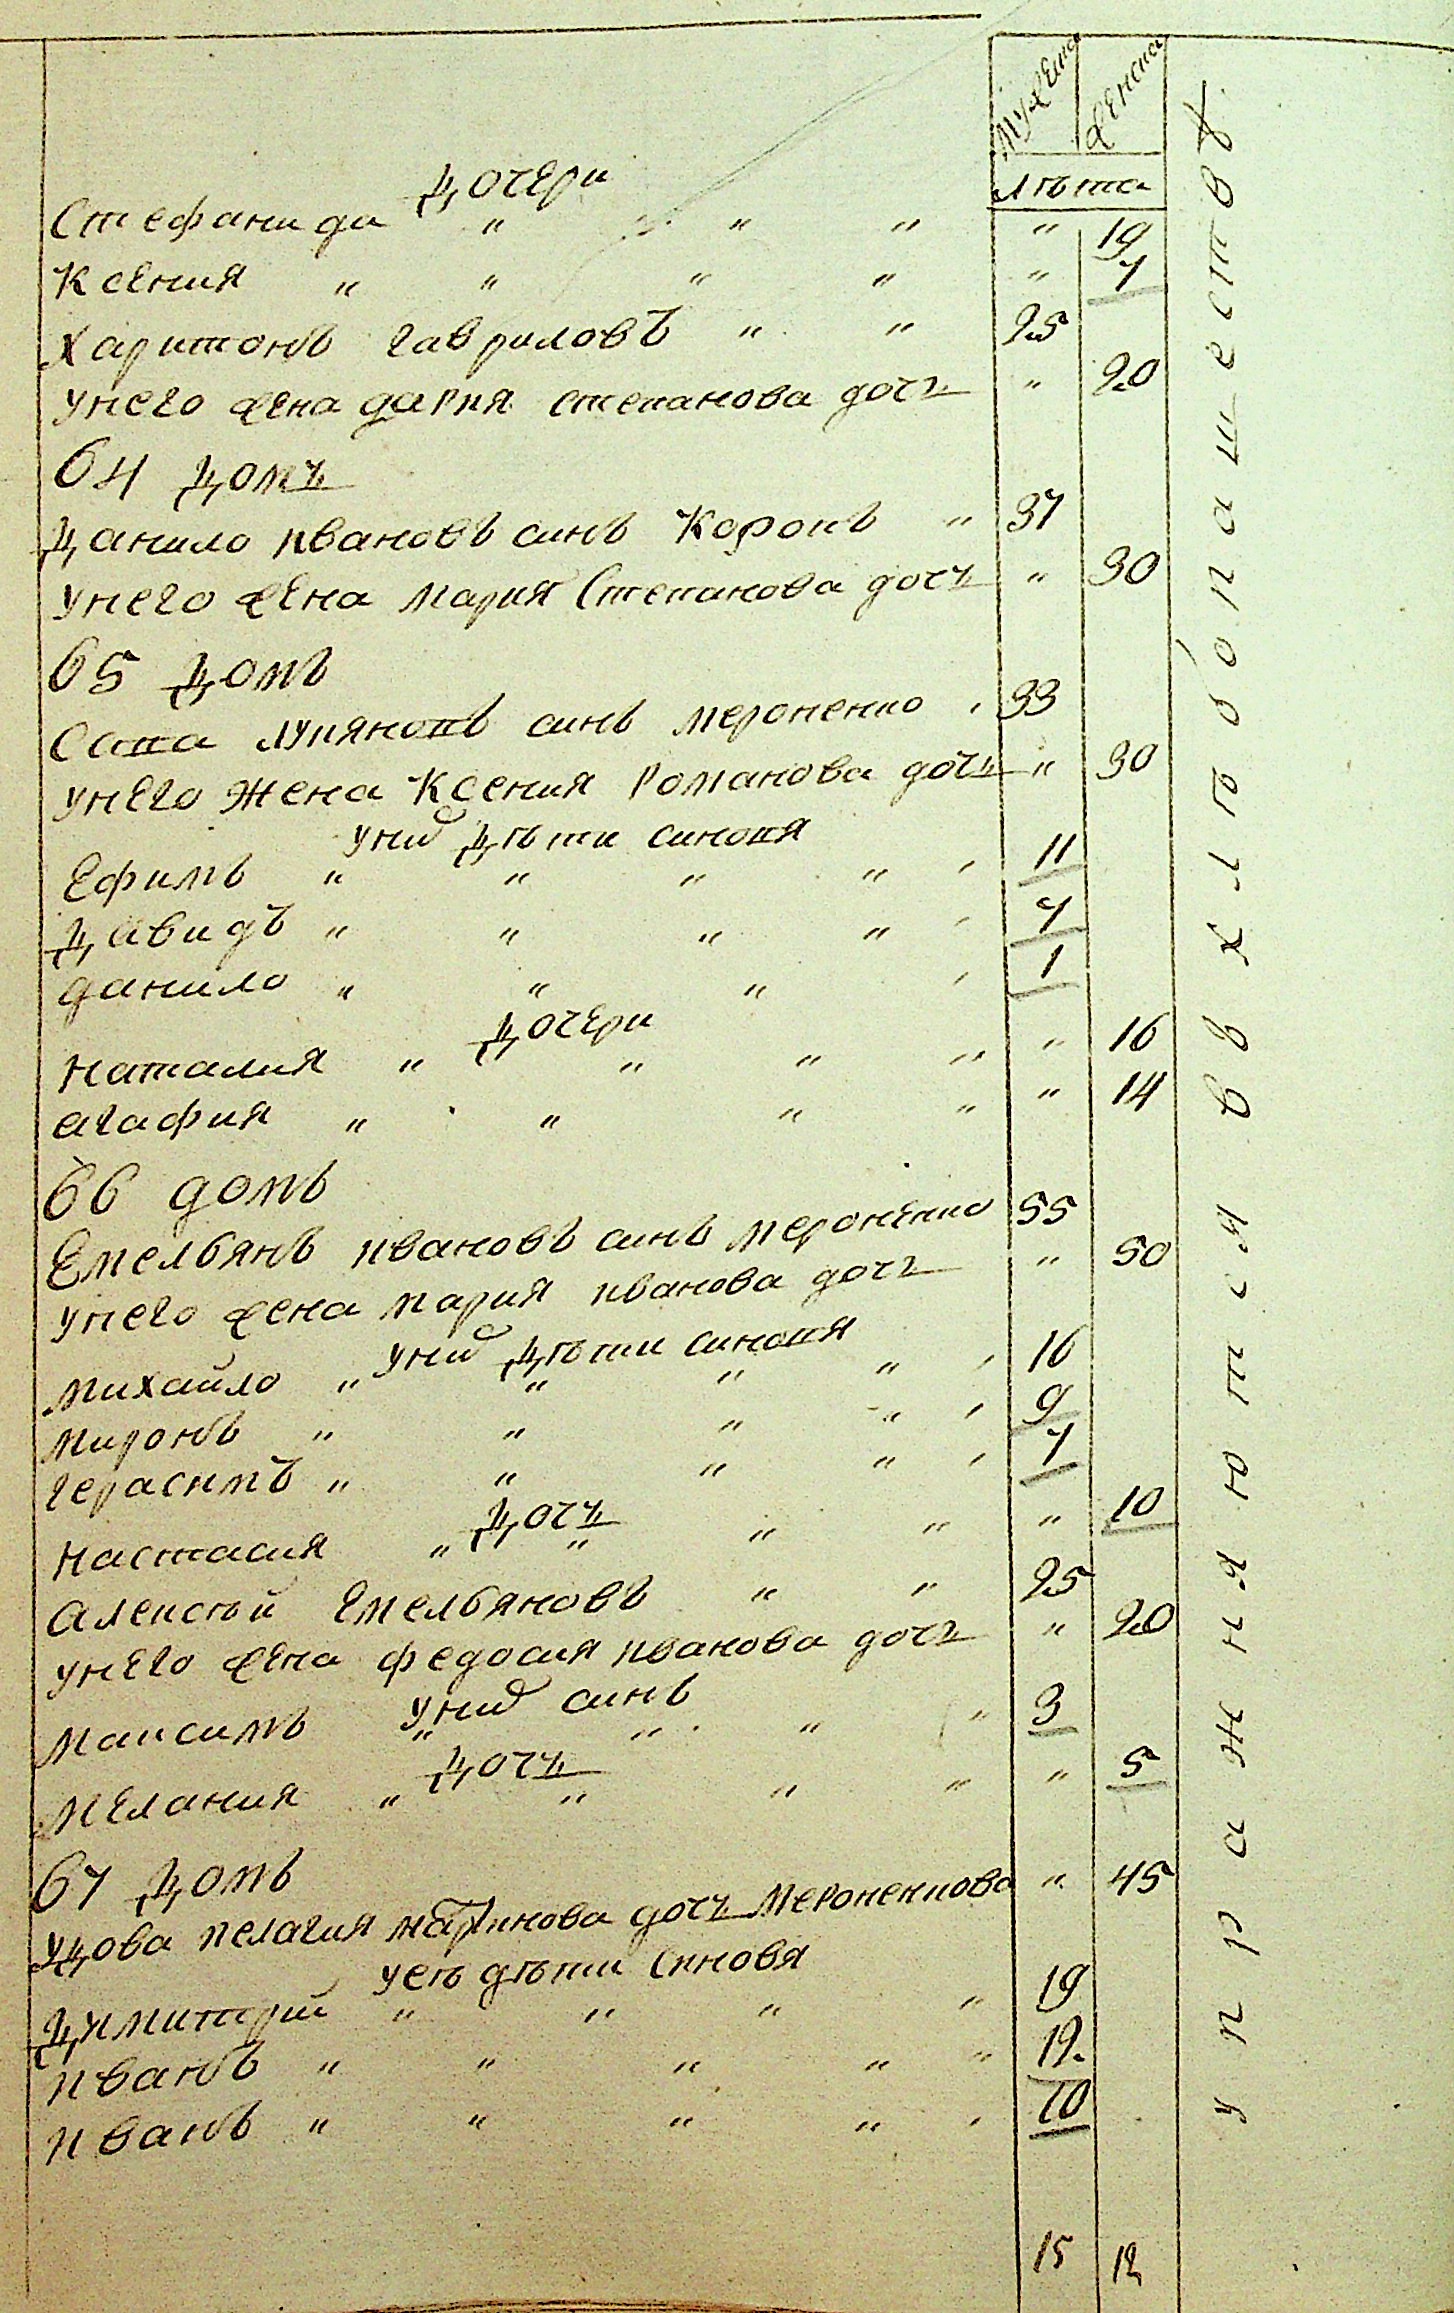 мужеска женска
лѣта
Дочери
Стефанида " " " " 19
Ксения " " " " " 7
Харитонъ гавриловъ " " 25
унего жена дария степанова дочь " 20
64 Домъ
Данило ивановъ синъ Коропъ " 37
унего жена мария Степанова дочъ " 30
65 Домъ
Сава лукяновъ синъ мероненко 33
унего жена Ксения романова дочъ " 30
уних дѣти синовя
Ефимъ " " " " 11
Давидъ " " " " 7
данило " " " 1
Дочери
наталия " " " " " 16
агафия " " " " " 14
66 домъ
Емельянъ ивановъ синъ мероненко 55
унего жена мария иванова дочь " 50
уних дѣти синовя
михайло " " " " 16
миронъ " " " " 9
герасимъ " " " " 7
Дочъ
настасия " " " " " 10
алексѣй Емельяновъ " " 25
унего жена федосия иванова дочь " 20
уних синъ
максимъ " " " " 3
Дочъ
мелания " " " " " 5
67 Домъ
удова пелагия мартинова дочъ мероненкова " 45
уеѣ дѣти синовя
Димитрий " " " " 19
иванъ " " " " " 12.
иванъ " " " " 10
15 12
упражняются в хлѣбопашествѣ.